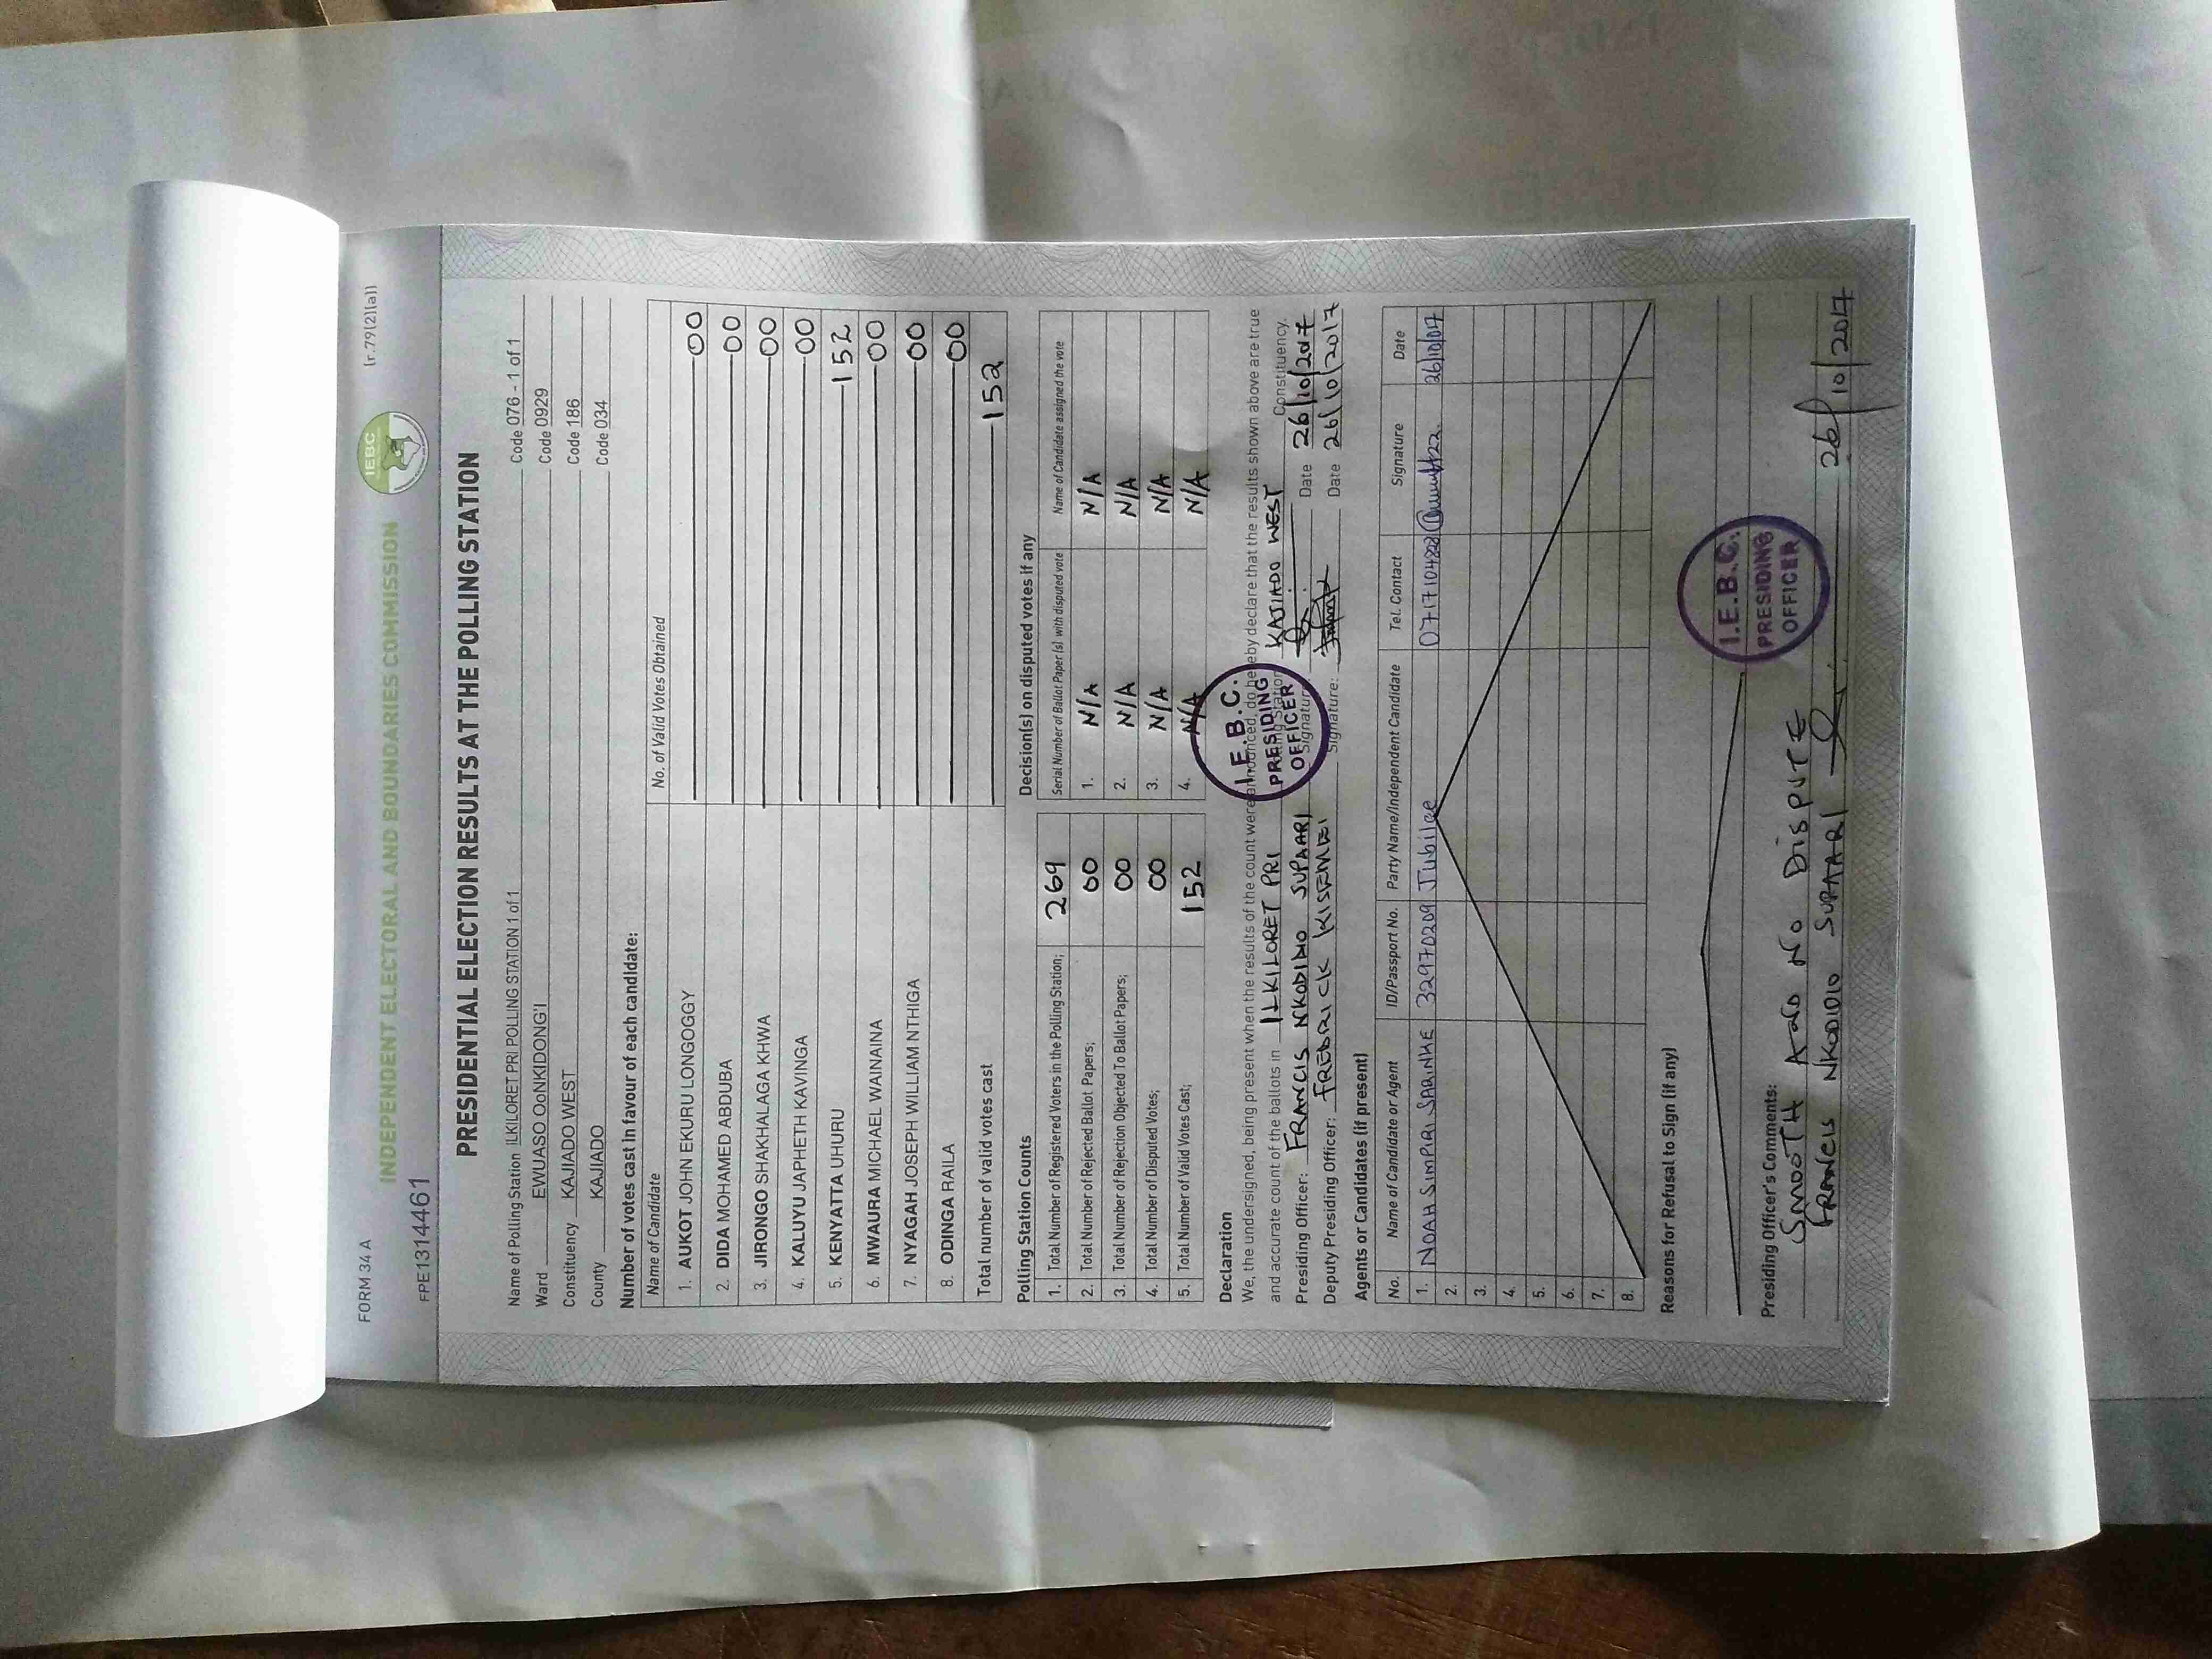 FORM 34 A
(r.79(2)(a))
IEBC
INDEPENDENT ELECTORAL AND BOUNDARIES COMMISSION
FPE1314461
PRESIDENTIAL ELECTION RESULTS AT THE POLLING STATION
Name of Polling Station ILKILORET PRI POLLING STATION 1 of 1 Code 076 - 1 of 1
Ward EWUASO OoNKIDONG'I Code 0929
Constituency KAJIADO WEST Code 186
County KAJIADO Code 034
Number of votes cast in favour of each candidate:
Name of Candidate No. of Valid Votes Obtained
1. AUKOT JOHN EKURU LONGOGGY 00
2. DIDA MOHAMED ABDUBA 00
3. JIRONGO SHAKHALAGA KHWA 00
4. KALUYU JAPHETH KAVINGA 00
5. KENYATTA UHURU 152
6. MWAURA MICHAEL WAINAINA 00
7. NYAGAH JOSEPH WILLIAM NTHIGA 00
8. ODINGA RAILA 00
Total number of valid votes cast 152
Polling Station Counts
1. Total Number of Registered Voters in the Polling Station; 269
2. Total Number of Rejected Ballot Papers; 00
3. Total Number of Rejection Objected To Ballot Papers; 00
4. Total Number of Disputed Votes; 00
5. Total Number of Valid Votes Cast; 152
Decision(s) on disputed votes if any
Serial Number of Ballot Paper (s) with disputed vote Name of Candidate assigned the vote
1. N/A N/A
2. N/A N/A
3. N/A N/A
4. N/A N/A
Declaration
We, the undersigned, being present when the results of the count were announced, do hereby declare that the results shown above are true
and accurate count of the ballots in ILKILORET PRI Polling Station KAJIADO WEST Constituency.
Presiding Officer: FRANCIS NKODIDIO SUPAARI Signature Date 26/10/2017
Deputy Presiding Officer: FREDRICK KISEMEI Signature: Date 26/10/2017
I.E.B.C.
PRESIDING
OFFICER
Agents or Candidates (if present)
No. Name of Candidate or Agent ID/Passport No. Party Name/Independent Candidate Tel. Contact Signature Date
1. NOAH SIMPIRI SARINKE 32970209 Jubilee
2.
3.
4.
5.
6.
7.
8.
Reasons for Refusal to Sign (if any)
I.E.B.C.
PRESIDING
OFFICER
Presiding Officer's Comments:
SMOOTH AND NO DISPUTE
FRANCIS NKODIDIO SUPAARI 26/10/2017